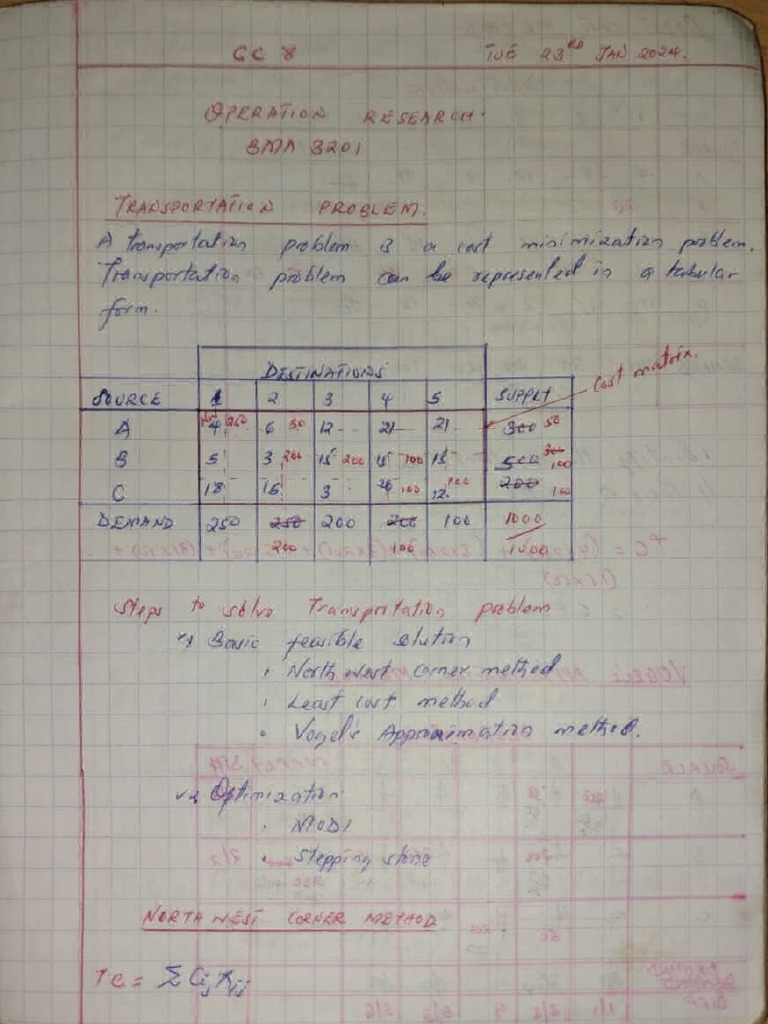 CC 8 TUE 23RD JAN 2024.
OPERATION RESEARCH.
SMA 3201
TRANSPORTATION PROBLEM.
A transportation problem is a cost minimization problem.
Transportation problem can be represented in a tabular
form.
DESTINATIONS
Cost matrix.
SOURCE 1 2 3 4 5 SUPPLY
A 4 250 6 50 12 21 21 300 50
B 5 3 200 15 200 15 100 15 500 300 100
C 18 15 3 100 12 100 200 100
DEMAND 250 250 200 200 100 1000
200 100 1000
Steps to solve Transportation problem
1 Basic feasible solution
· North West corner method
· Least cost method
· Vogel's Approximation method.
2 Optimization
· MODI
· Stepping stone
NORTH WEST CORNER METHOD
TC = Σ Cij Xij